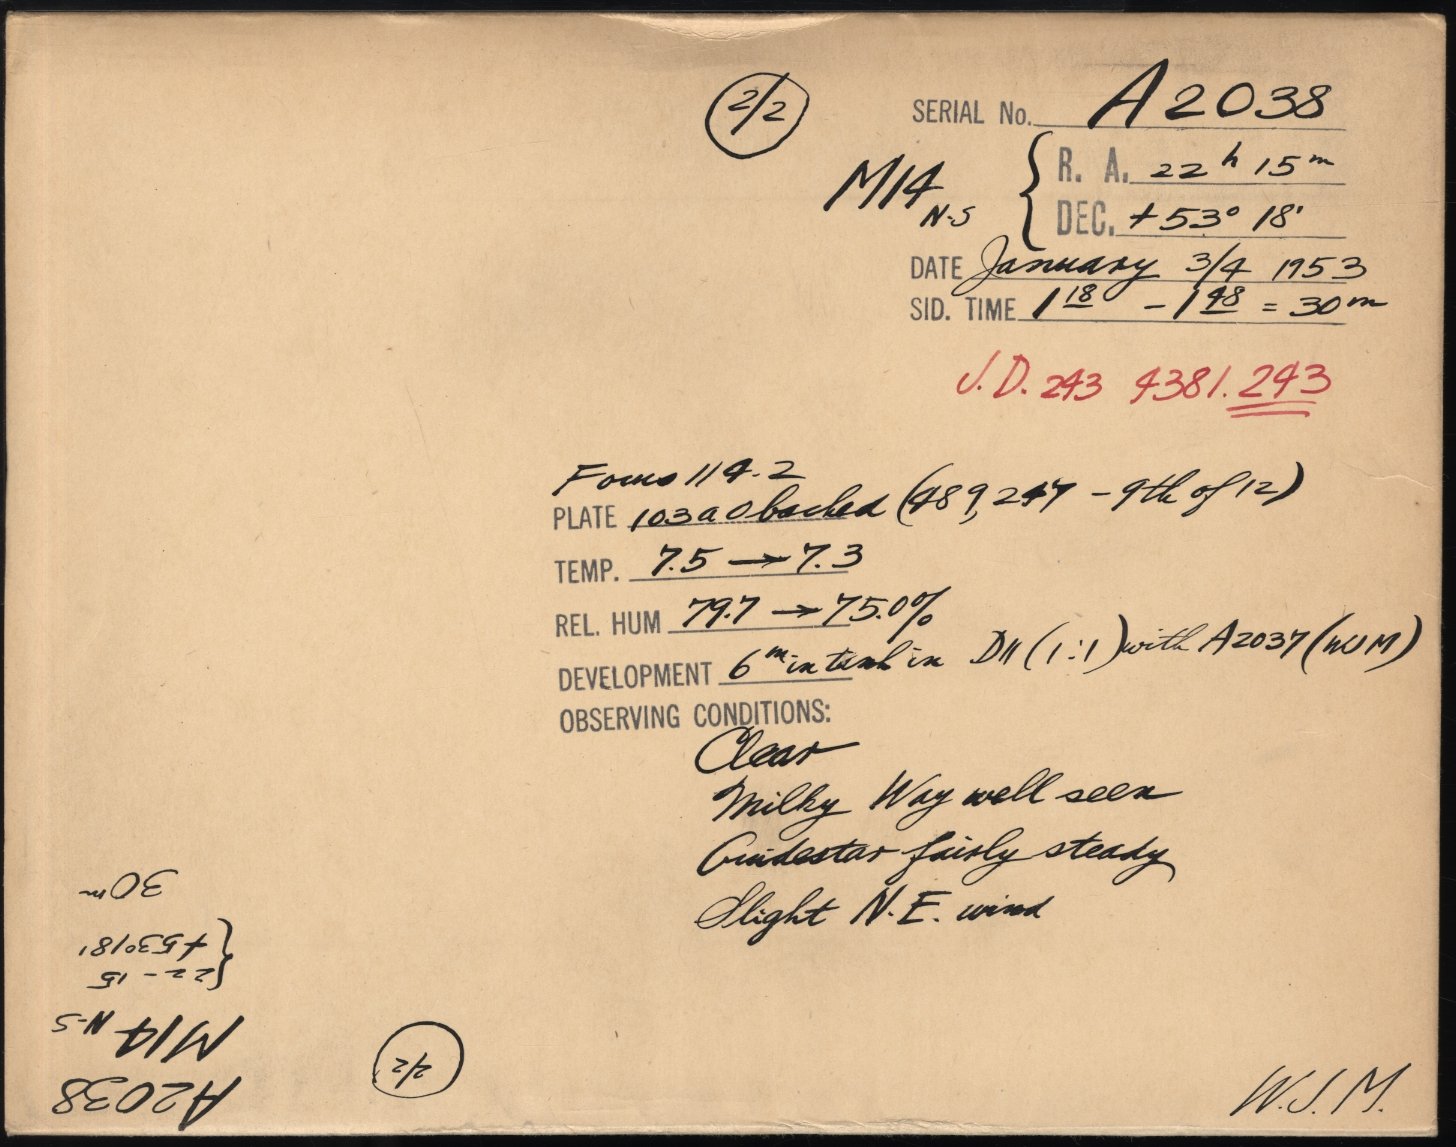 2/2
SERIAL No. A2038
M14 N-S { R. A. 22ʰ 15ᵐ
DEC. +53° 18'
DATE January 3/4 1953
SID. TIME 1 18 - 1 48 = 30ᵐ
J.D. 243 4381.243
Focus 114.2
PLATE 103aO backed (489,247 - 9th of 12)
TEMP. 7.5 → 7.3
REL. HUM 79.7 → 75.0%
DEVELOPMENT 6ᵐ in tank in D11 (1:1) with A2037 (WJM)
OBSERVING CONDITIONS:
Clear
Milky Way well seen
Guidestar fairly steady
Slight N.E. wind
W.J.M.
A2038
2/2
M14 N-S
{ 22 - 15
+53°18'
30ᵐ